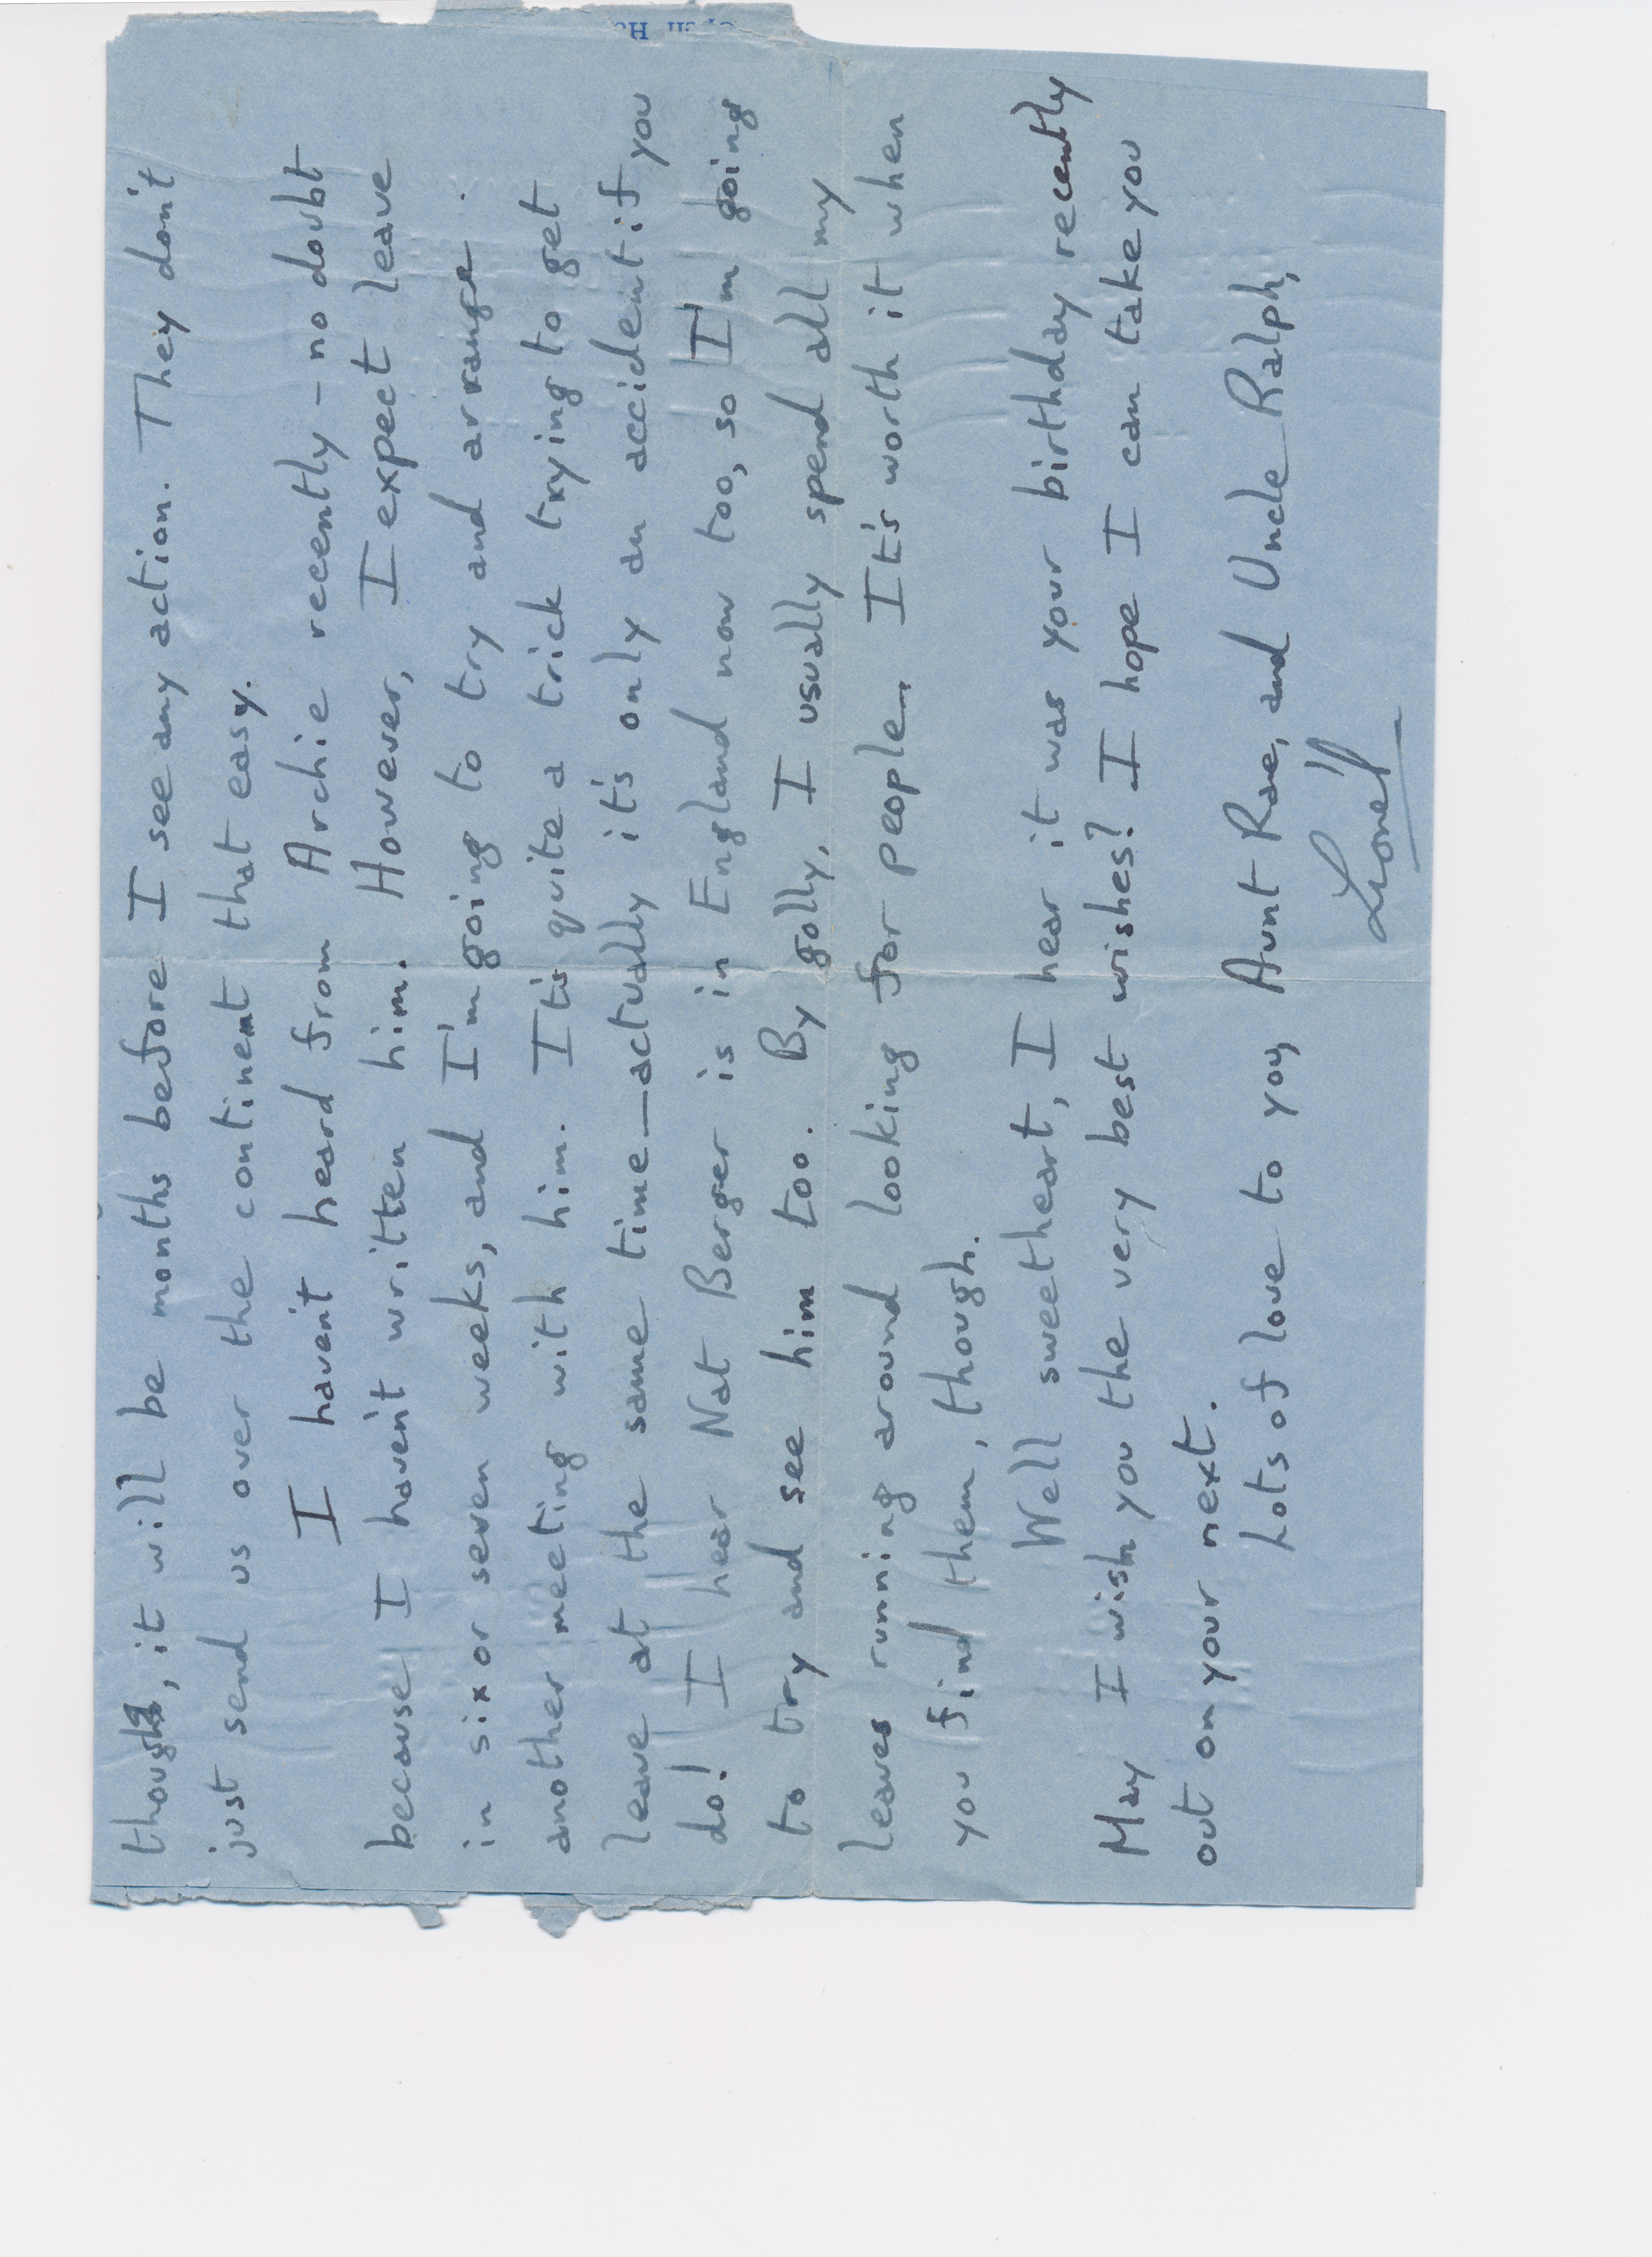 though, it will be months before I see any action. They don't
just send us over the continent that easy.
I haven't heard from Archie recently – no doubt
because I haven't written him. However, I expect leave
in six or seven weeks, and I'm going to try and arrange.
another meeting with him. It's quite a trick trying to get
leave at the same time — actually it's only an accident if you
do! I hear Nat Berger is in England now too, so I'm going
to try and see him too. By golly, I usually spend all my
leaves running around looking for people. It's worth it when
you find them, though.
Well sweetheart, I hear it was your birthday recently
May I wish you the very best wishes? I hope I can take you
out on your next.
Lots of love to you, Aunt Rae, and Uncle Ralph,
Lionel